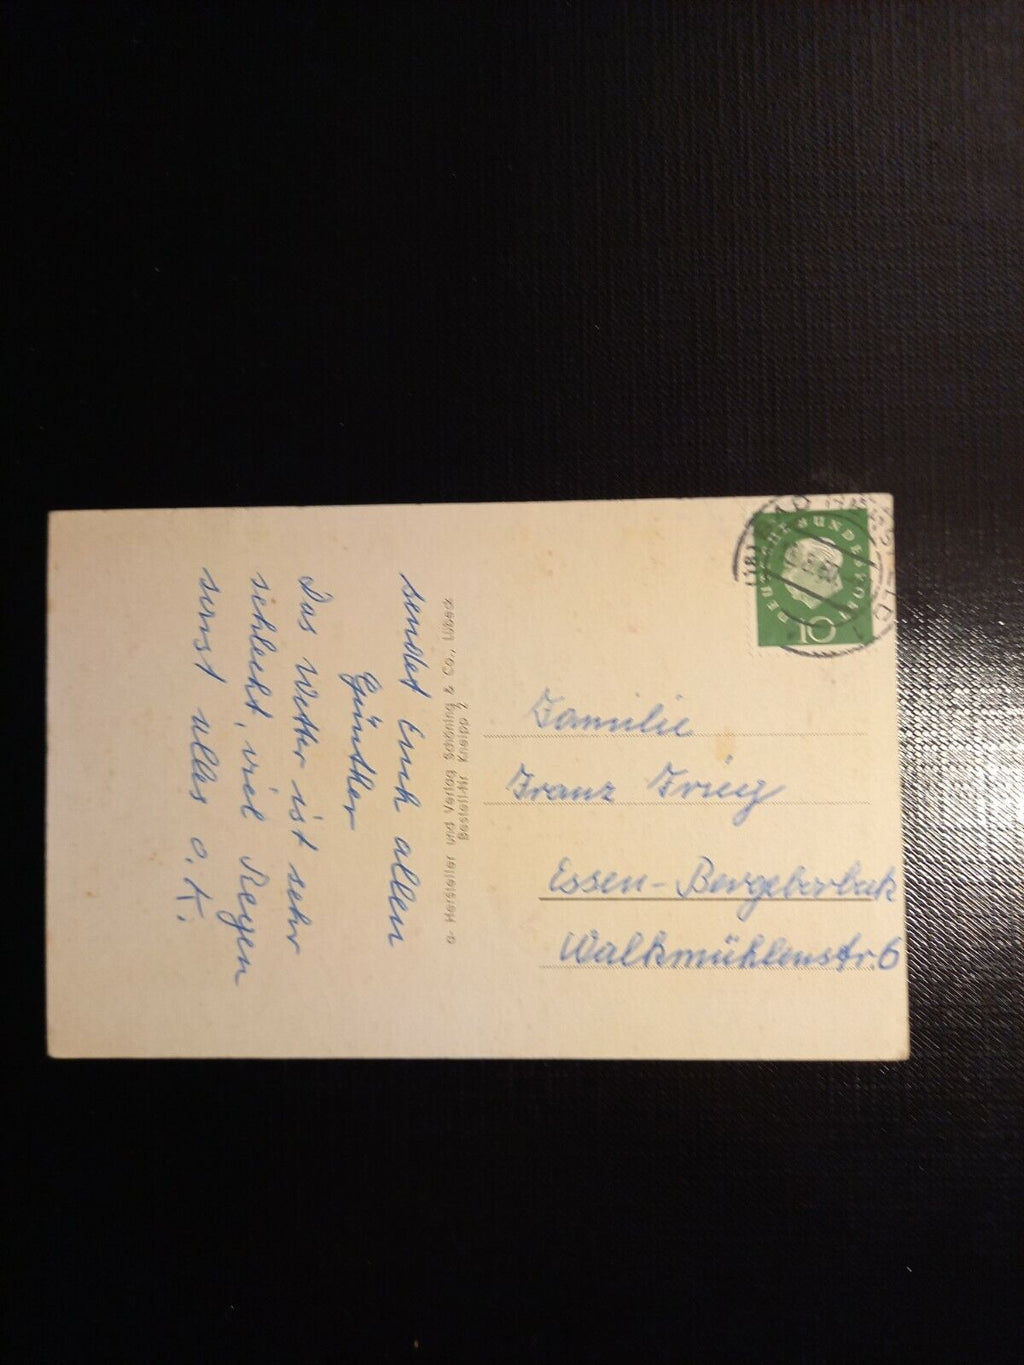 sendet Euch allen
Günther
Das Wetter ist sehr
schlecht, viel Regen
sonst alles o. k.
Hersteller und Verlag Schöning & Co., Lübeck
Bestellnr. Knieb 2
Familie
Franz Frieg
Essen-Bergeborbek
Walkmühlenstr. 6
DEUTSCHE BUNDESPOST
10